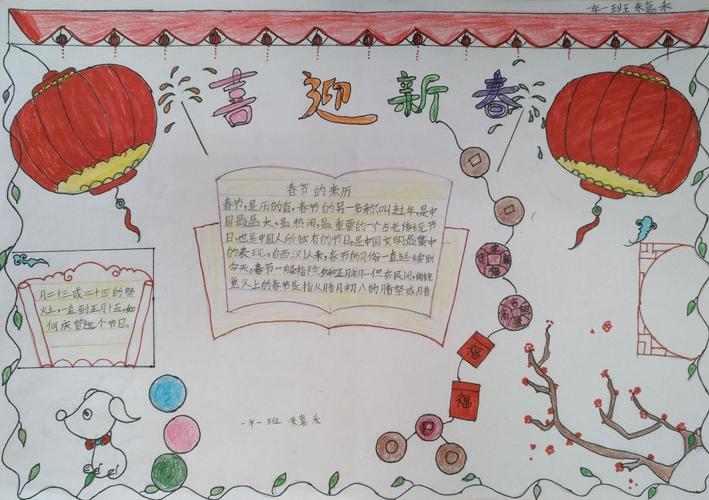 年一班 朱嘉禾
喜迎新春
春节的来历
春节,是历的首,春节的另一名称叫过年,是中
国最盛大,最热闹,最重要的一个古老传统节
日,也是中国人所独有的节日。是中国文明最集中
的表现。自西汉以来,春节的习俗一直延续到
今天。春节一般指除夕和正月初一但在民间,传统
意义上的春节是指从腊月初八的腊祭或腊
月二十三或二十四的祭
灶,一直到正月十五,如
何庆贺这个节日。
福
福
一年一班 朱嘉禾